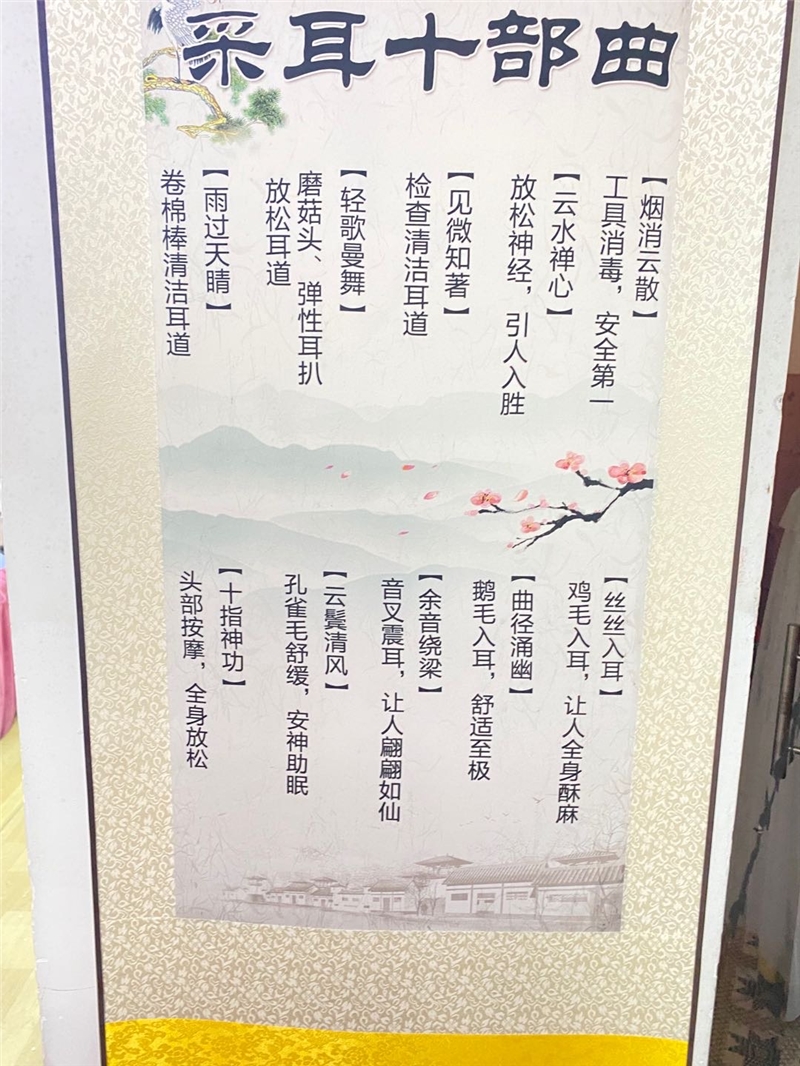 采耳十部曲
【烟消云散】
工具消毒，安全第一
【云水禅心】
放松神经，引人入胜
【见微知著】
检查清洁耳道
【轻歌曼舞】
磨菇头、弹性耳扒
放松耳道
【雨过天晴】
卷棉棒清洁耳道
【丝丝入耳】
鸡毛入耳，让人全身酥麻
【曲径涌幽】
鹅毛入耳，舒适至极
【余音绕梁】
音叉震耳，让人翩翩如仙
【云鬓清风】
孔雀毛舒缓，安神助眠
【十指神功】
头部按摩，全身放松